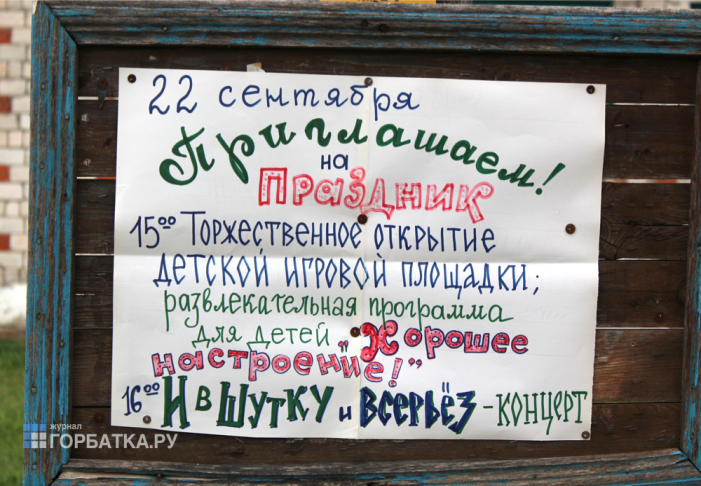 22 сентября
Приглашаем!
на
Праздник
15⁰⁰ Торжественное открытие
детской игровой площадки;
развлекательная программа
для детей „Хорошее
настроение!”
16⁰⁰ И в шутку и всерьёз - концерт
журнал
ГОРБАТКА.РУ